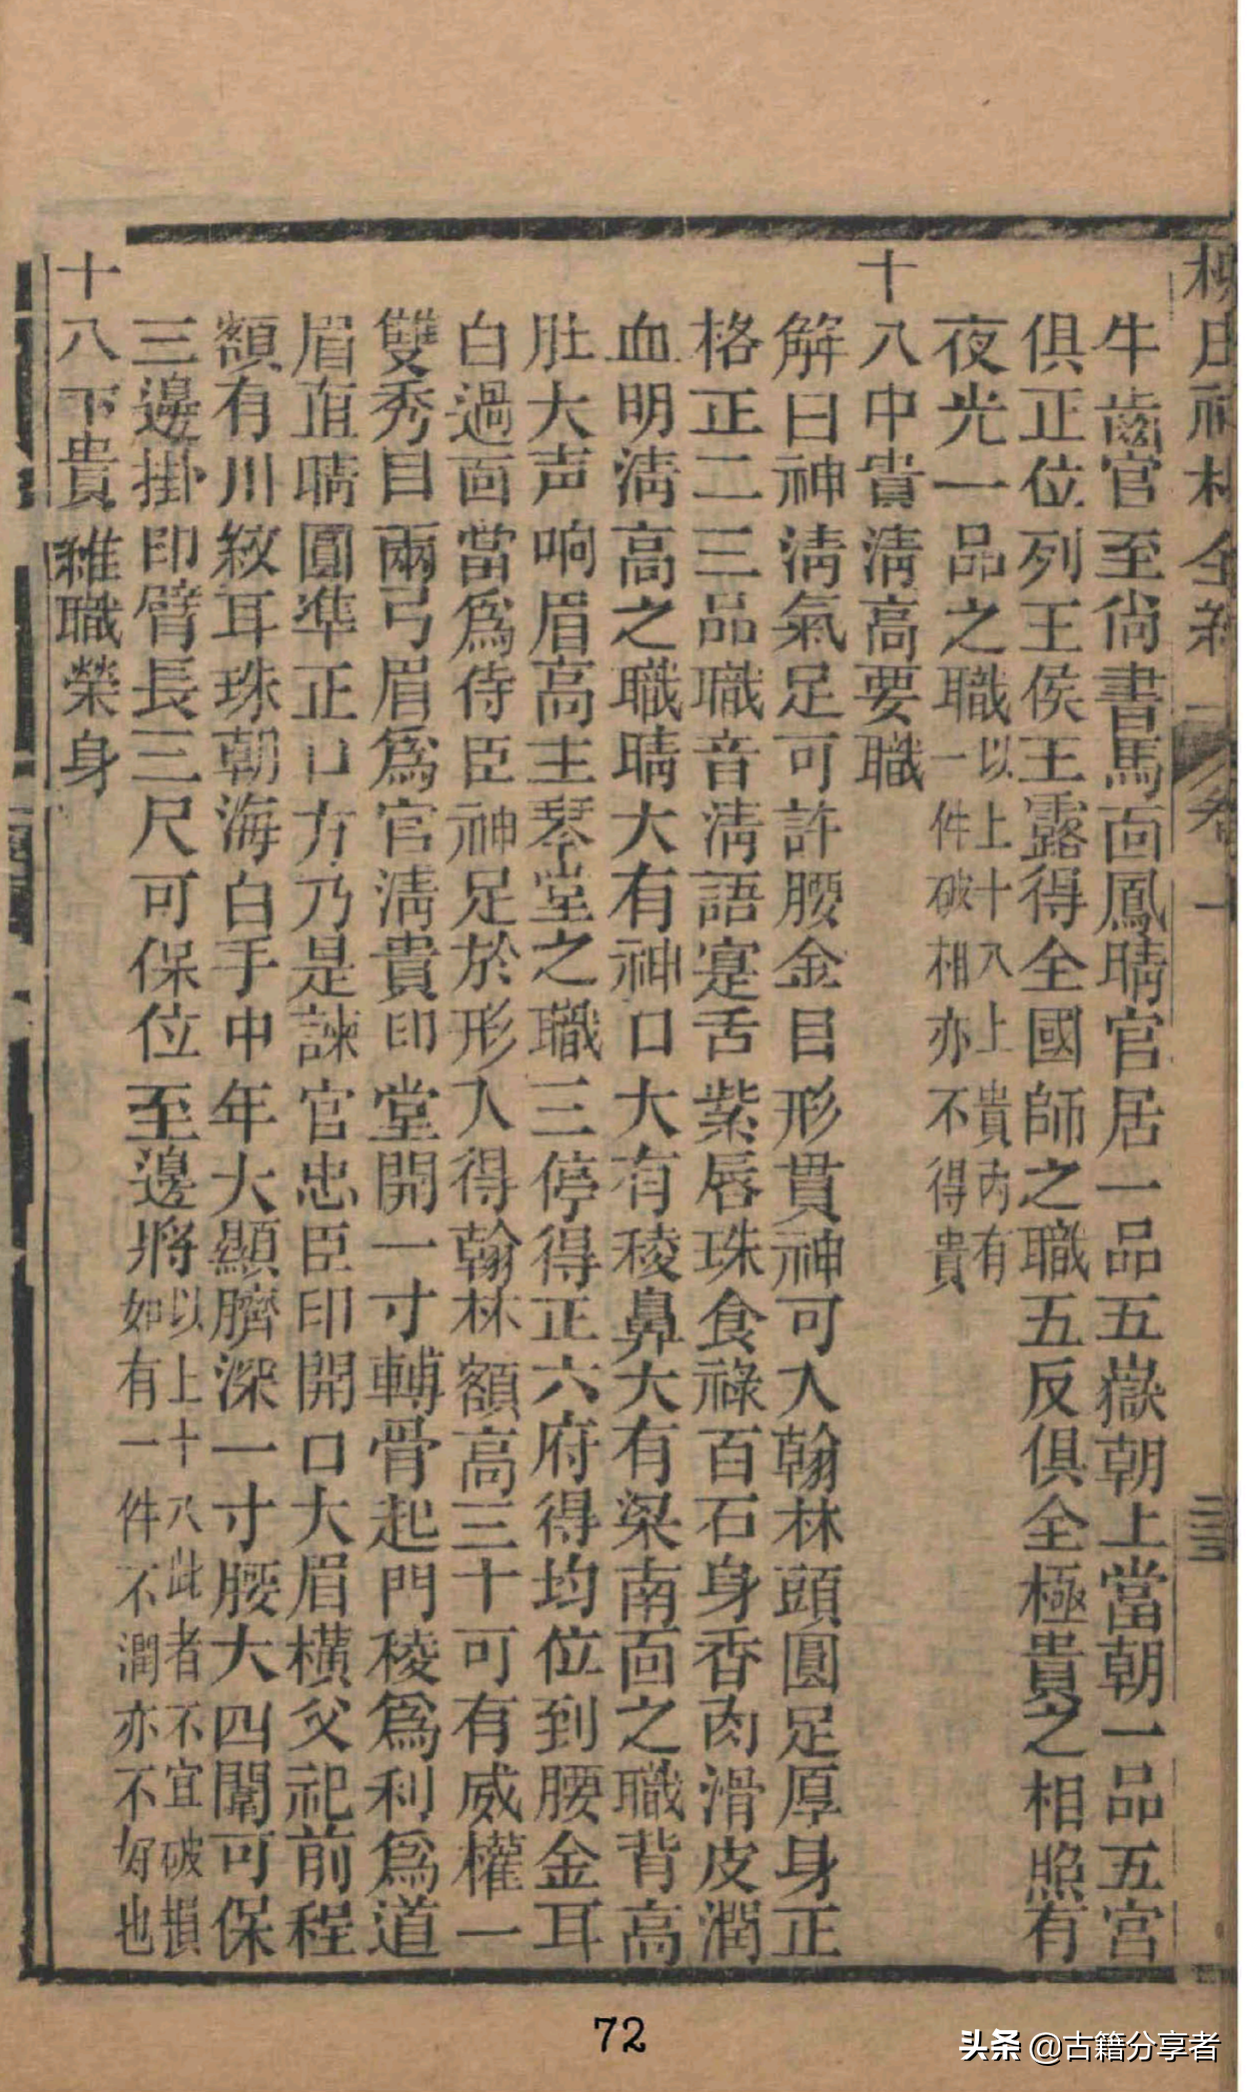 柳庄神相全編 卷一 三三
牛齒官至尙書馬面鳳睛官居一品五嶽朝上當朝一品五宮
俱正位列王侯王露得全國師之職五反俱全極貴之相照有
夜光一品之職以上十八上貴內有一件破相亦不得貴
十八中貴淸高要職
解曰神淸氣足可許腰金目形貫神可入翰林頭圓足厚身正
格正二三品職音淸語寔舌紫唇珠食祿百石身香肉滑皮潤
血明淸高之職睛大有神口大有稜鼻大有梁南面之職背高
肚大声响眉高主琴堂之職三停得正六府得均位到腰金耳
白過面當爲侍臣神足於形入得翰林額高三十可有威權一
雙秀目兩弓眉爲官淸貴印堂開一寸輔骨起門稜爲利爲道
眉直睛圓準正口方乃是諫官忠臣印開口大眉橫父祀前程
額有川紋耳珠朝海白手中年大顯臍深一寸腰大四闈可保
三邊掛印臂長三尺可保位至邊將以上十八此者不宜破損如有一件不潤亦不好也
十八下貴雜職榮身
72
头条 @古籍分享者